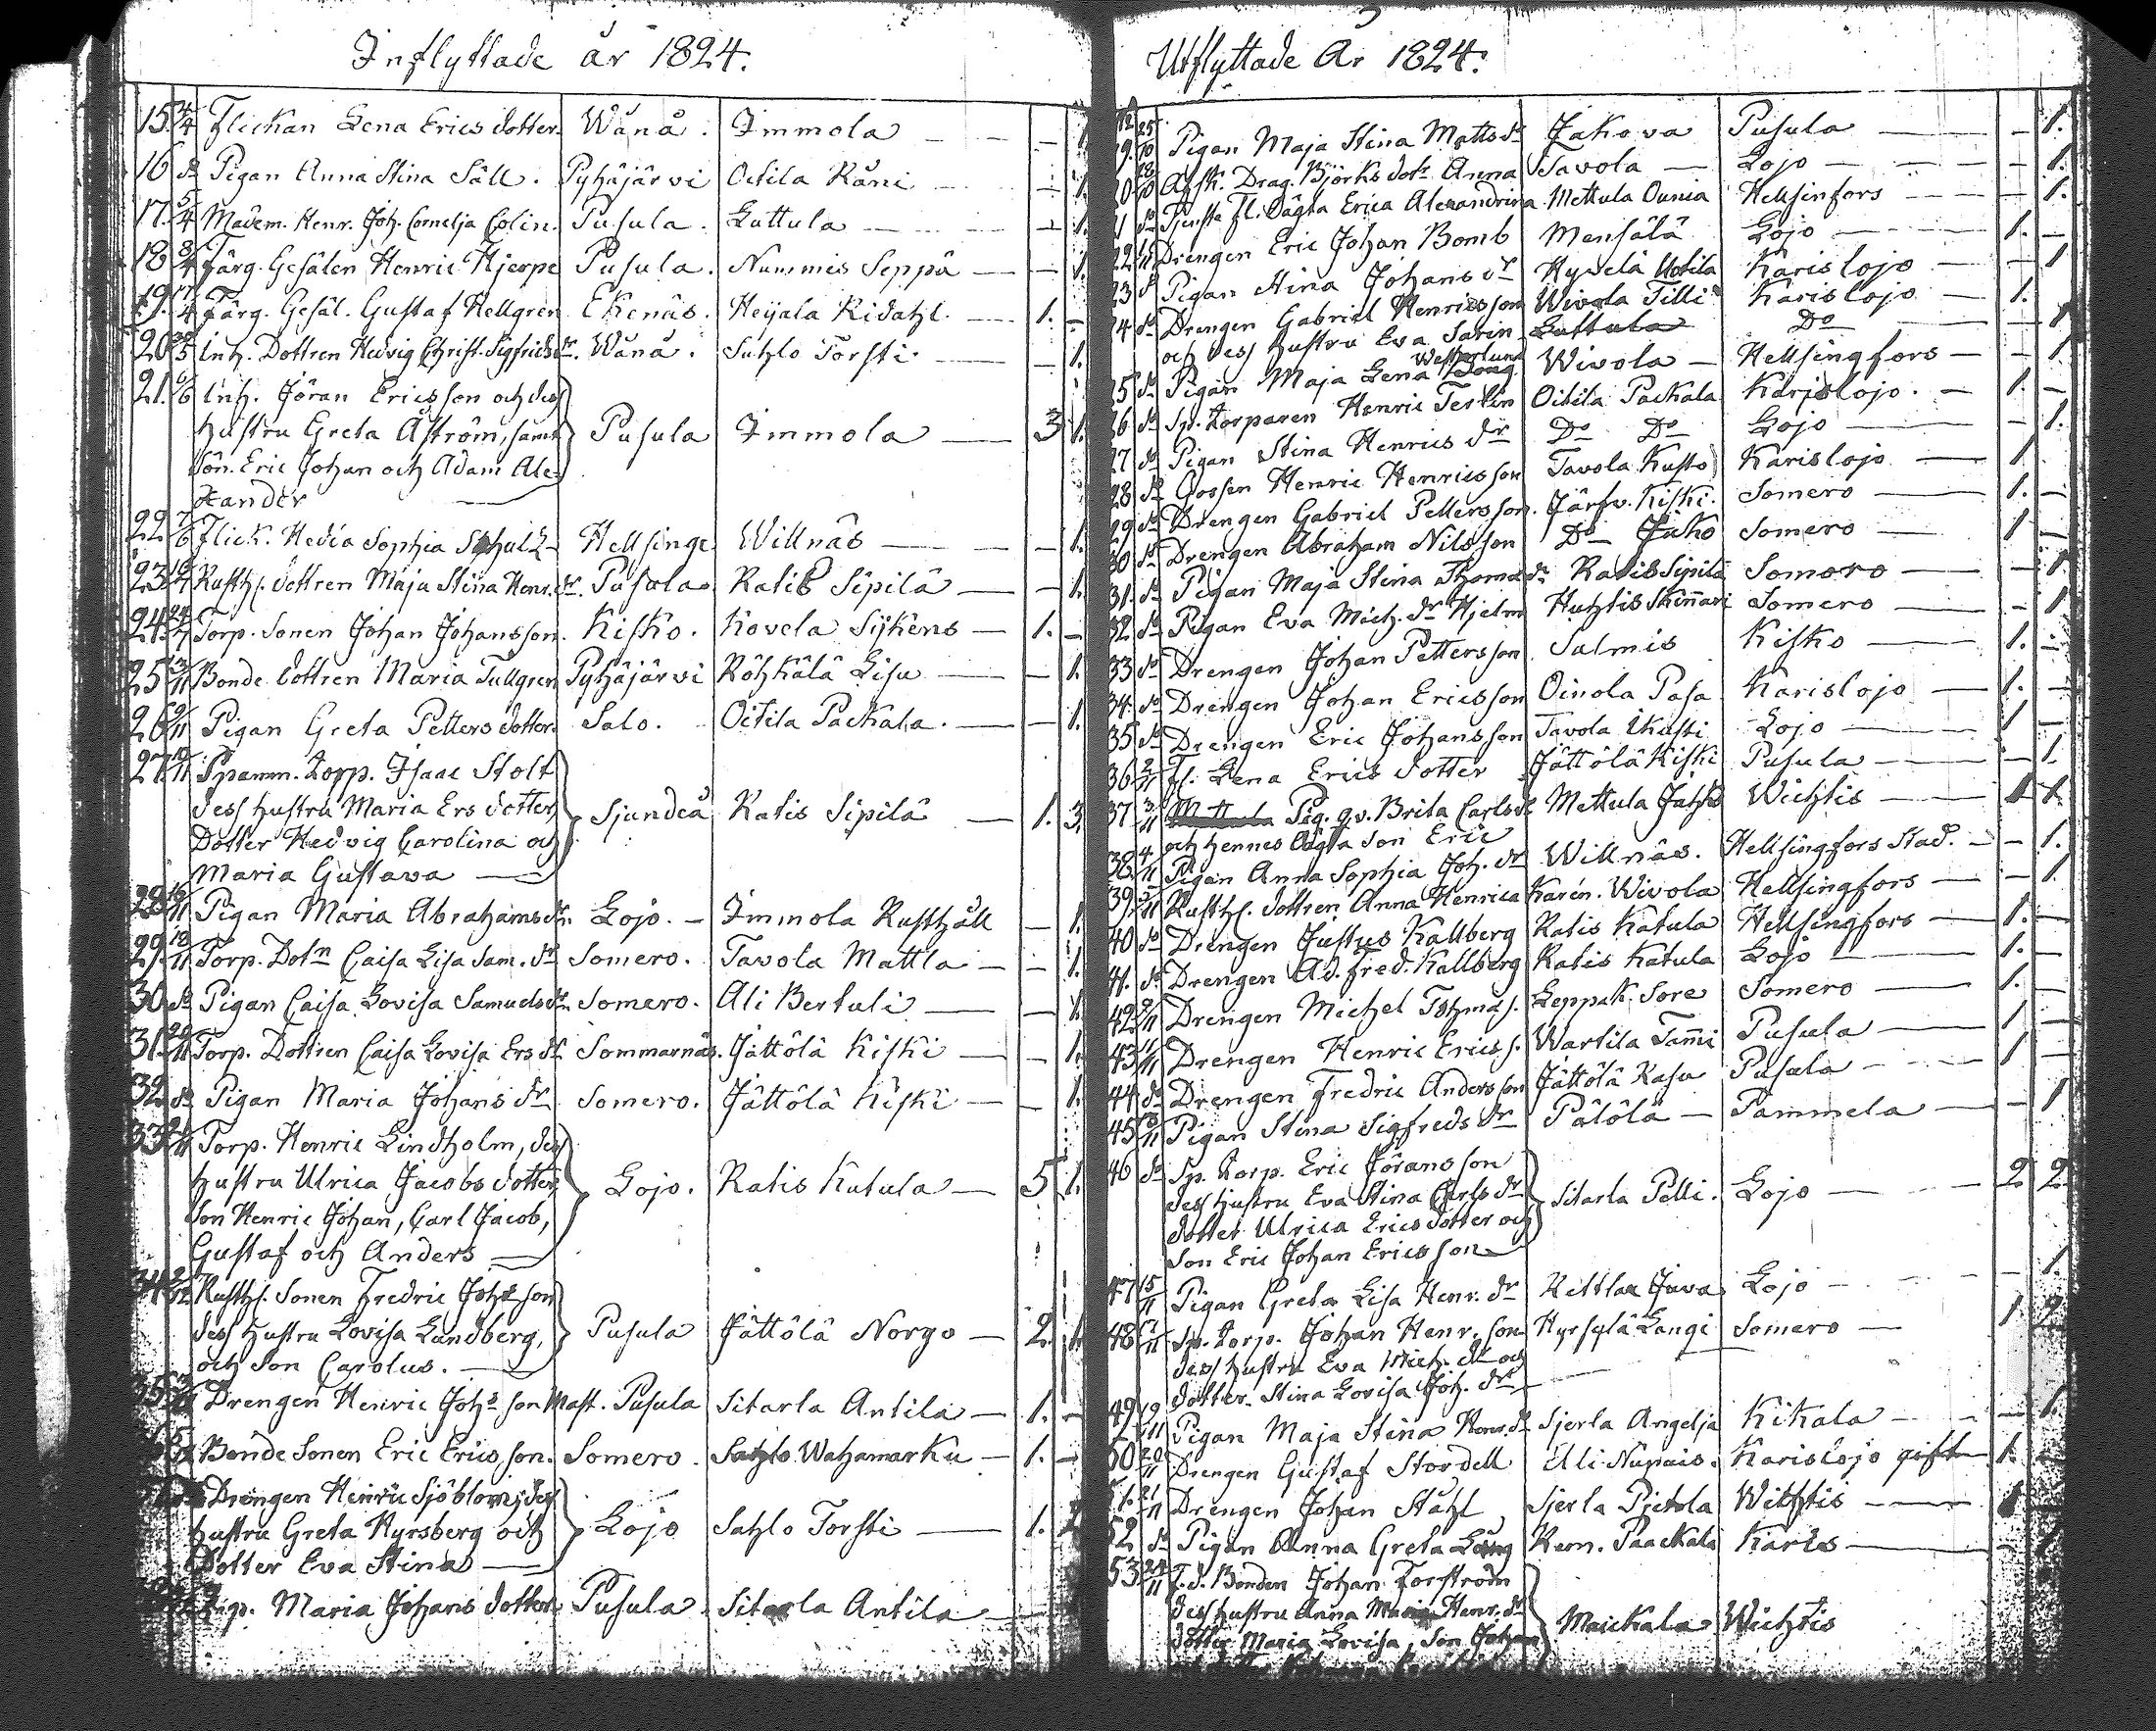 Inflyttade år 1824.
15. 4/4 Flickan Lena Erics dotter. Wånå. Immola — — — 1.
16 do Pigan Anna Stina Säll. Pyhäjärvi Oitila Räni — — 1.
17. 5/4 Madem. Henr. Joh. Cornelja Colin. Pusula. Luttula — — 1.
18 8/4 Färg. Gesälen Henric Hjerpe Pusula. Nummis Seppä — — 1.
19. 17/4 Färg. Gesäl. Gustaf Hellgren Ekenäs. Heijala Ridahl. — 1. —
20 Inh. Dottren Hedvig Christ. Sigfridsdr. Wånå. Suhlo Torsti. — 1.
21. 6/6 Inh. Jöran Ericsson och dess
hustru Greta Åström, samt Pusula Immola — 3 1.
Sön. Eric Johan och Adam Ale-
xander —
22 7/6 Flick. Hedda Sophia Schultz Hellsinge Willnäs — — — 1.
23 Rusth. dottren Maja Stina Henr. dr. Pusula. Ratis Sipilä — — 1.
24 24/7 Torp. Sonen Johan Johansson. Kisko. Kovela Sijkens — 1. —
25 3/11 Bonde dottren Maria Tullgren Pyhäjärvi Röhkälä Lisu — — 1.
26 9/11 Pigan Greta Petters dotter. Salo. Oitila Packala. — — 1.
27. 10/11 Spanm. Torp. Isaac Stolt
dess hustru Maria Ers dotter, Sjundeå Ratis Sipilä — 1. 3.
Dotter Hedvig Carolina och
Maria Gustava —
28 16/11 Pigan Maria Abrahams dr. Lojo. — Immola Rusthåll — 1.
29. 18/11 Torp. Dotn Caisa Lisa Sam. dr Somero. Tavola Mattla — — 1.
30 do Pigan Caisa Lovisa Samuels dr. Somero. Ali Bertuli — — 1.
31. 20/11 Torp. Dottren Caisa Lovisa Ers dr Sommarnäs. Jättölä Kiski — — 1.
32 do Pigan Maria Johans dr Somero. Jättölä Kiski — — 1.
33 Torp. Henric Lindholm, dess
hustru Ulrica Jacobs dotter, Lojo. Ratis Kutula — 5 1.
Son Henric Johan, Carl Jacob,
Gustaf och Anders —
34 2/12 Rusth. Sonen Fredric Johs son
dess hustru Lovisa Lundberg, Pusula Jättölä Norgo — 2. 1.
och Son Carolus. —
35 Drengen Henric Johs son Mast. Pusula Sitarla Antila — 1. —
Bonde Sonen Eric Ericsson. Somero. Sahlo Wahamarku — 1. —
Drengen Henric Sjöblom, dess
hustru Greta Kyrsberg och Lojo Sahlo Torsti — 1. 2
Dotter Eva Stina —
Pig. Maria Johans dotter. Pusula. Sitarla Antila —
Utflyttade År 1824.
19. 25/10 Pigan Maja Stina Matts dr Jakova Pusula — — 1.
20 28/10 Afsk. Drag. Björks dotr Anna Tavola — Lojo — — — 1.
21 do Tjenste fl. Oägta Erica Alexandrina Mettula Ounia Hellsinfors — — 1.
22 Drengen Eric Johan Bomb Mensälä Lojo — — 1. —
23 do Pigan Stina Johans dr Hyvelä Uotila Karislojo — — 1
24 do Drengen Gabriel Henricsson Wivola Tilli Karislojo — 1.
och dess hustru Eva Sarin Luttula Do — 1
Westerlund
25 do Pigan Maja Lena Wivola — Hellsingfors — — 1
26 do Sp. Torparen Henric Terlin Oitila Packala Karislojo. — 1
27 do Pigan Stina Henrics dr Do Do Lojo — — 1.
28 do Gossen Henric Henricsson Tavola Kusto Karislojo — 1
29 do Drengen Gabriel Pettersson. Järfv. Kiski. Somero — 1. —
30 do Drengen Abraham Nilsson Do Jako Somero — 1 —
31. do Pigan Maja Stina Thoma dr Ratis Sipilä Somero — — 1
32. do Pigan Eva Mich. dr Hjelm Huhtis Skinnari Somero — — 1
33 do Drengen Johan Pettersson Salmis Kisko — 1. —
34. do Drengen Johan Ericsson Oinola Pasa Karislojo — 1. —
35 do Drengen Eric Johansson Tavola Ikusti Lojo — 1 —
36 2/11 Fl. Lena Erics dotter Jättölä Kiski Pusula — — 1.
37 3/11 Pig. q.v. Brita Carls dr Mettula Juhts Wichtis — 1 1.
och hennes Oägta Son Eric
38. 4/11 Pigan Anna Sophia Joh. dr Willnäs. Hellsingfors Stad. — — 1.
39 5/11 Rusth. dottren Anna Henrica Karen. Wivola Hellsingfors — — 1
40 do Drengen Justus Kallberg Ratis Katula Hellsingfors — 1. —
41. do Drengen Ad. Fred. Kallberg Ratis Katula Lojo — 1. —
42 9/11 Drengen Michel Tohmas. Leppäk. Sore Somero — 1. —
43 11/11 Drengen Henric Erics. Wartila Tammi Pusula — 1 —
44 do Drengen Fredric Andersson Jättölä Rasu Pusula — 1 —
45 13/11 Pigan Stina Sigfreds dr Pälölä — Tammela — — 1
46 do Sp. Torp. Eric Jöransson
dess hustru Eva Stina Carls dr Sitarla Pelli. Lojo — — 2 2
dotter Ulrica Erics dotter och
Son Eric Johan Ericsson
47 15/11 Pigan Greta Lisa Henr. dr Rettlax Java Lojo — — 1
48 17/11 Sp. Torp. Johan Henr. son Hyrsylä Langi Somero — 1. 2
dess hustru Eva Mich. dr och
dotter Stina Lovisa Joh. dr —
49 19/11 Pigan Maja Stina Henr. dr Sjerla Angelja Kikala — — 1.
50 20/11 Drengen Gustaf Stordell Uli Nupais. Karislojo gift 1. —
51. 21/11 Drengen Johan Ståhl Sjerla Pietola Wichtis — 1
52 do Pigan Anna Greta Kem. Paackala Karis — — 1
53 24/11 f.d. Bonden Johan Forström
dess hustru Anna Maria Henr. dr Maickala Wichtis
dotter Maria Lovisa, Son Johan